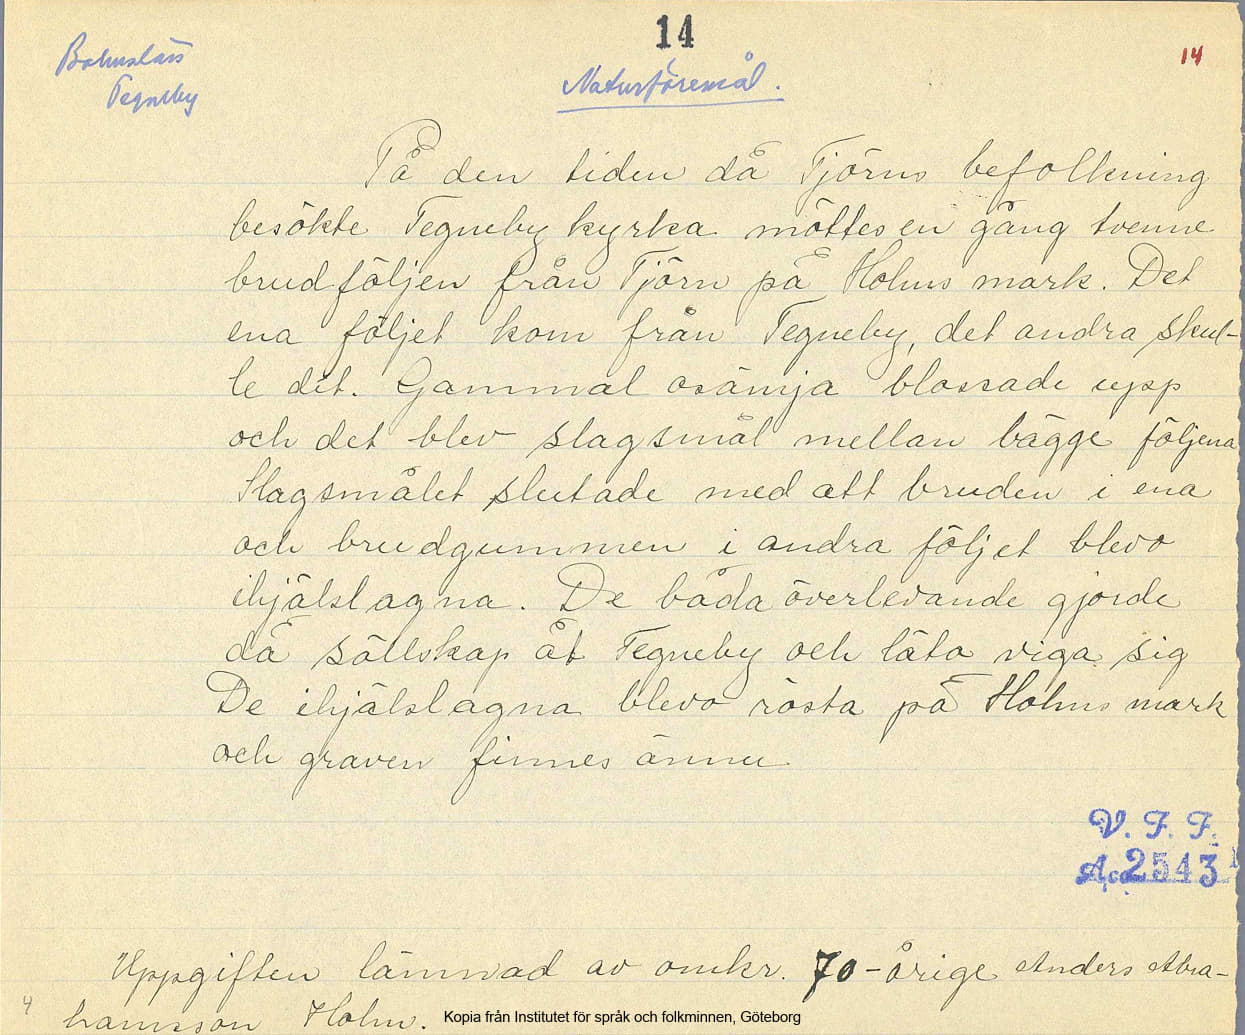 14
14
Bohuslän
Tegneby
Naturföremål.
På den tiden då Tjörns befolkning
besökte Tegneby kyrka möttes en gång tvenne
brudföljen från Tjörn på Holms mark. Det
ena följet kom från Tegneby, det andra skul-
le dit. Gammal osämja blossade upp
och det blev slagsmål mellan bägge följena
Slagsmålet slutade med att bruden i ena
och brudgummen i andra följet blevo
ihjälslagna. De båda överlevande gjorde
då sällskap åt Tegneby och läto viga sig
De ihjälslagna blevo rösta på Holms mark
och graven finnes ännu
V. F. F.
Acc 2543 1
Uppgiften lämnad av omkr. 70-årige Anders Abra-
hamsson Holm.
4
Kopia från Institutet för språk och folkminnen, Göteborg